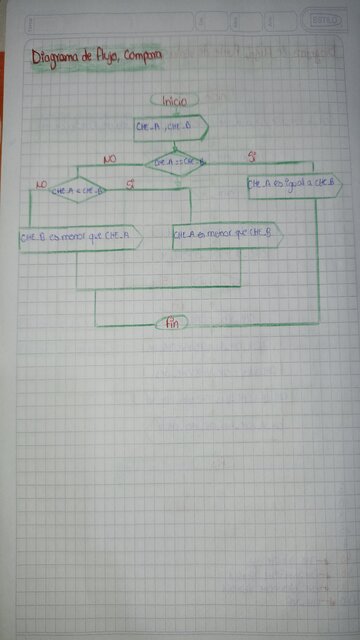 ESTILO
Diagrama de flujo, Compara
Inicio
CHE_A, CHE_B
CHE_A == CHE_B
NO
Si
NO
CHE_A < CHE_B
Si
CHE_A es igual a CHE_B
CHE_B es menor que CHE_A
CHE_A es menor que CHE_B
Fin